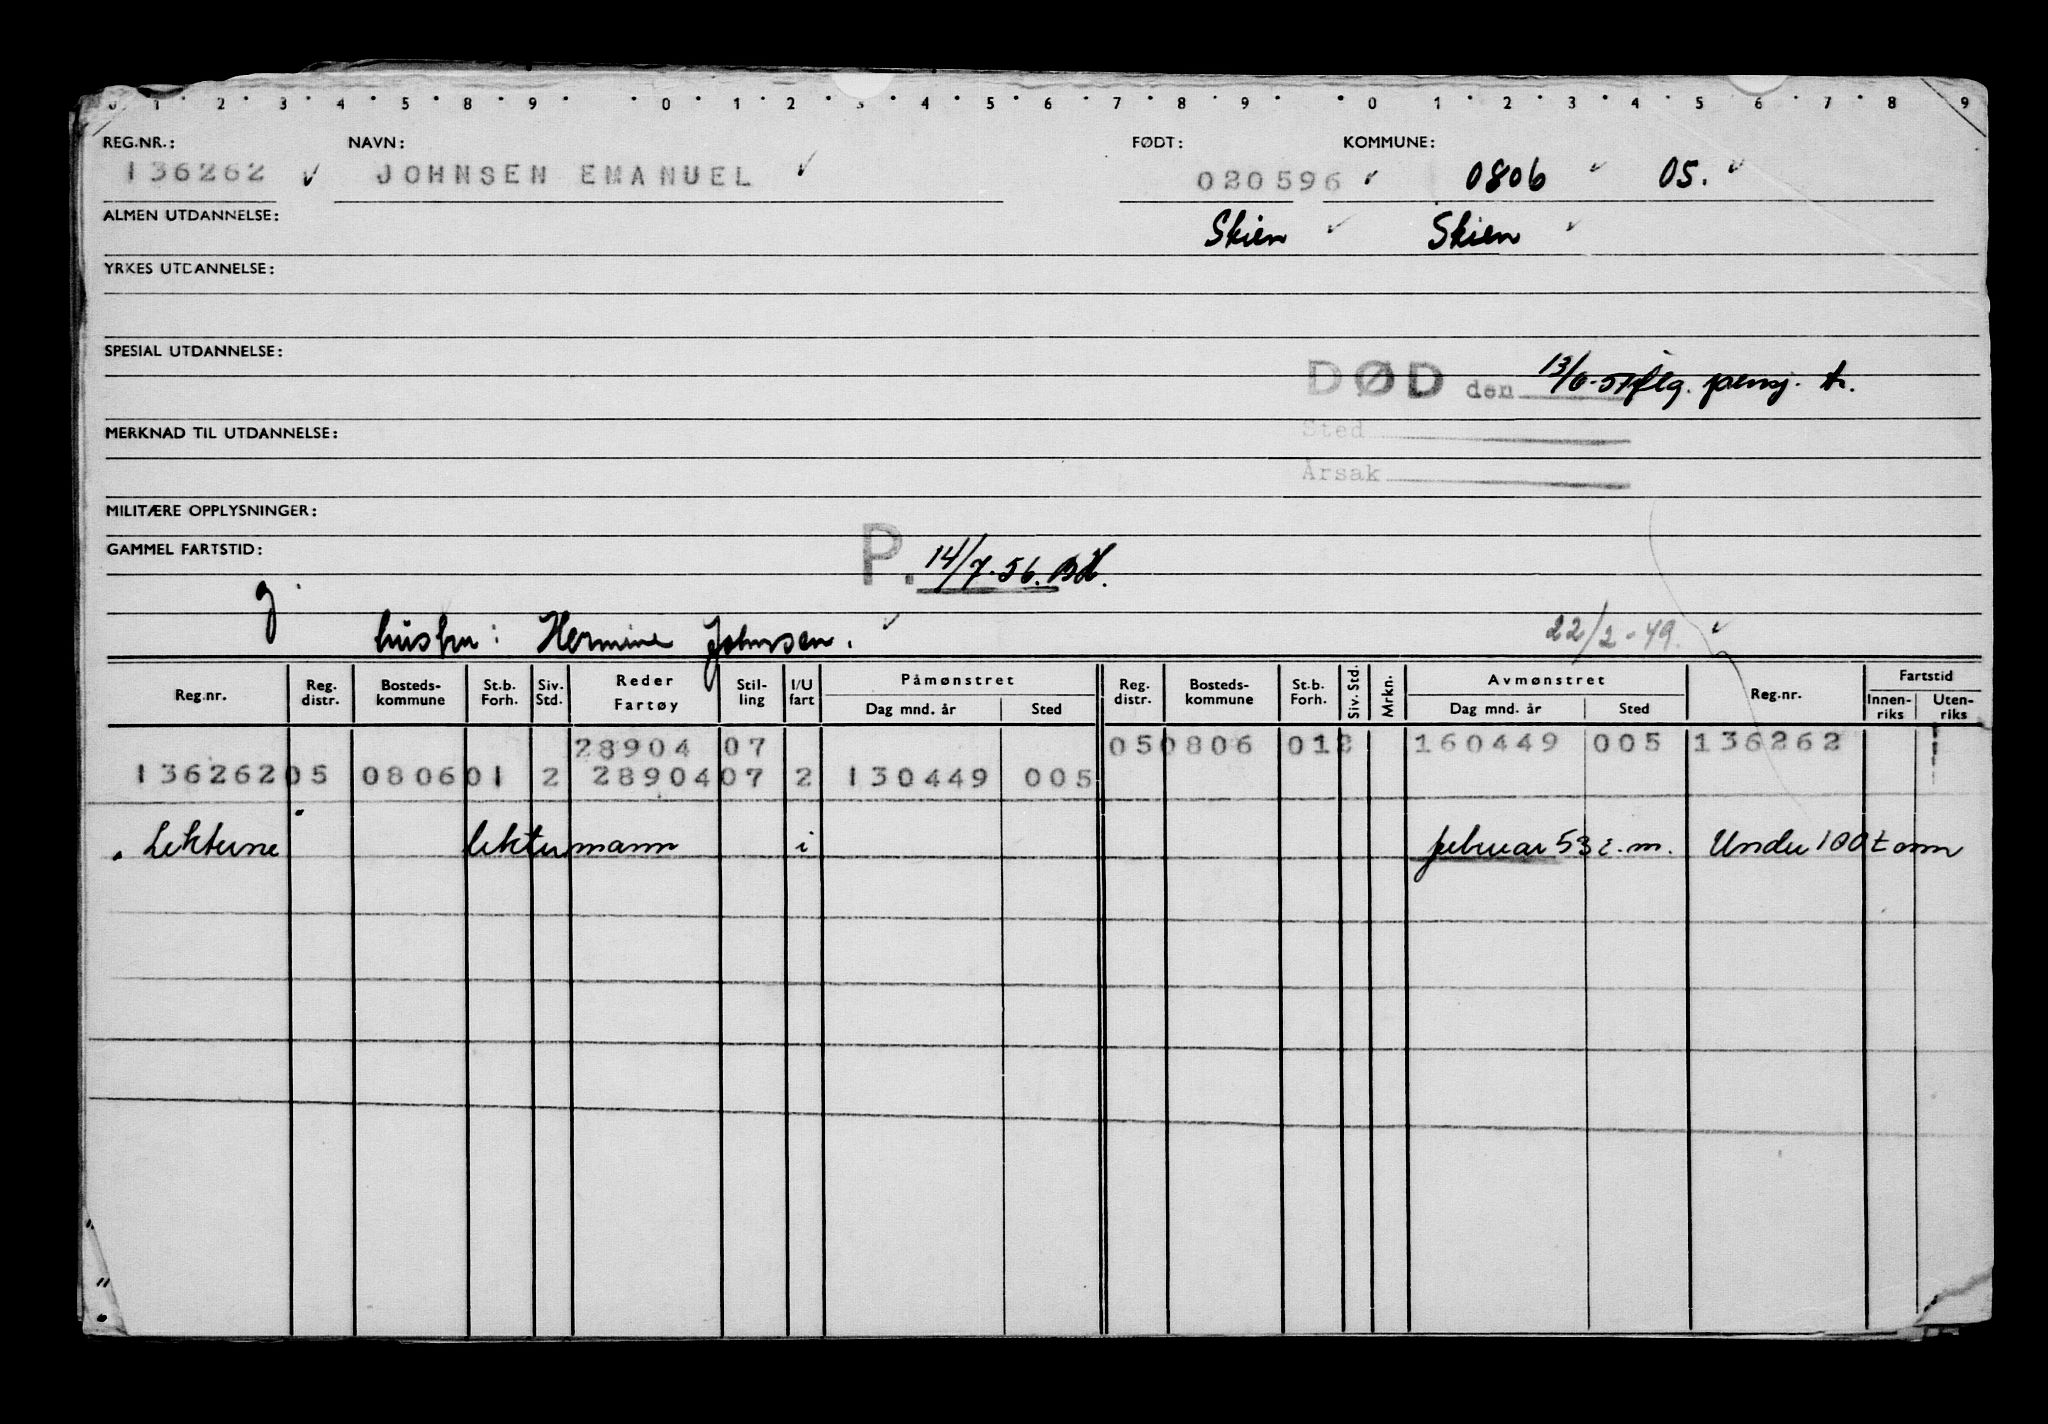 0 1 2 3 4 5 8 9 0 1 2 3 4 5 6 7 8 9 0 1 2 3 4 5 6 7 8 9
REG.NR.: NAVN: FØDT: KOMMUNE:
136262 JOHNSEN EMANUEL 020596 0806 05.
ALMEN UTDANNELSE: Skien Skien
YRKES UTDANNELSE:
SPESIAL UTDANNELSE:
DØD den 13/6-57 flg. pensj. tr.
Sted
MERKNAD TIL UTDANNELSE:
Årsak
MILITÆRE OPPLYSNINGER:
GAMMEL FARTSTID: P. 14/7-56. BH.
g.
hustru: Hermine Johnsen. 22/2-49.
Reg.nr. Reg. distr. Bosteds-kommune St.b. Forh. Siv. Std. Reder Fartøy Stil-ling I/U fart Påmønstret Dag mnd. år Sted Reg. distr. Bosteds-kommune St.b. Forh. Siv. Std. Mrkn. Avmønstret Dag mnd. år Sted Reg.nr. Fartstid Innen-riks Uten-riks
28904 07 05 0806 01 2 160449 005 136262
136262 05 0806 01 2 28904 07 2 130449 005
Lekterne lektermann i februar 53 e.m. Under 100 tonn